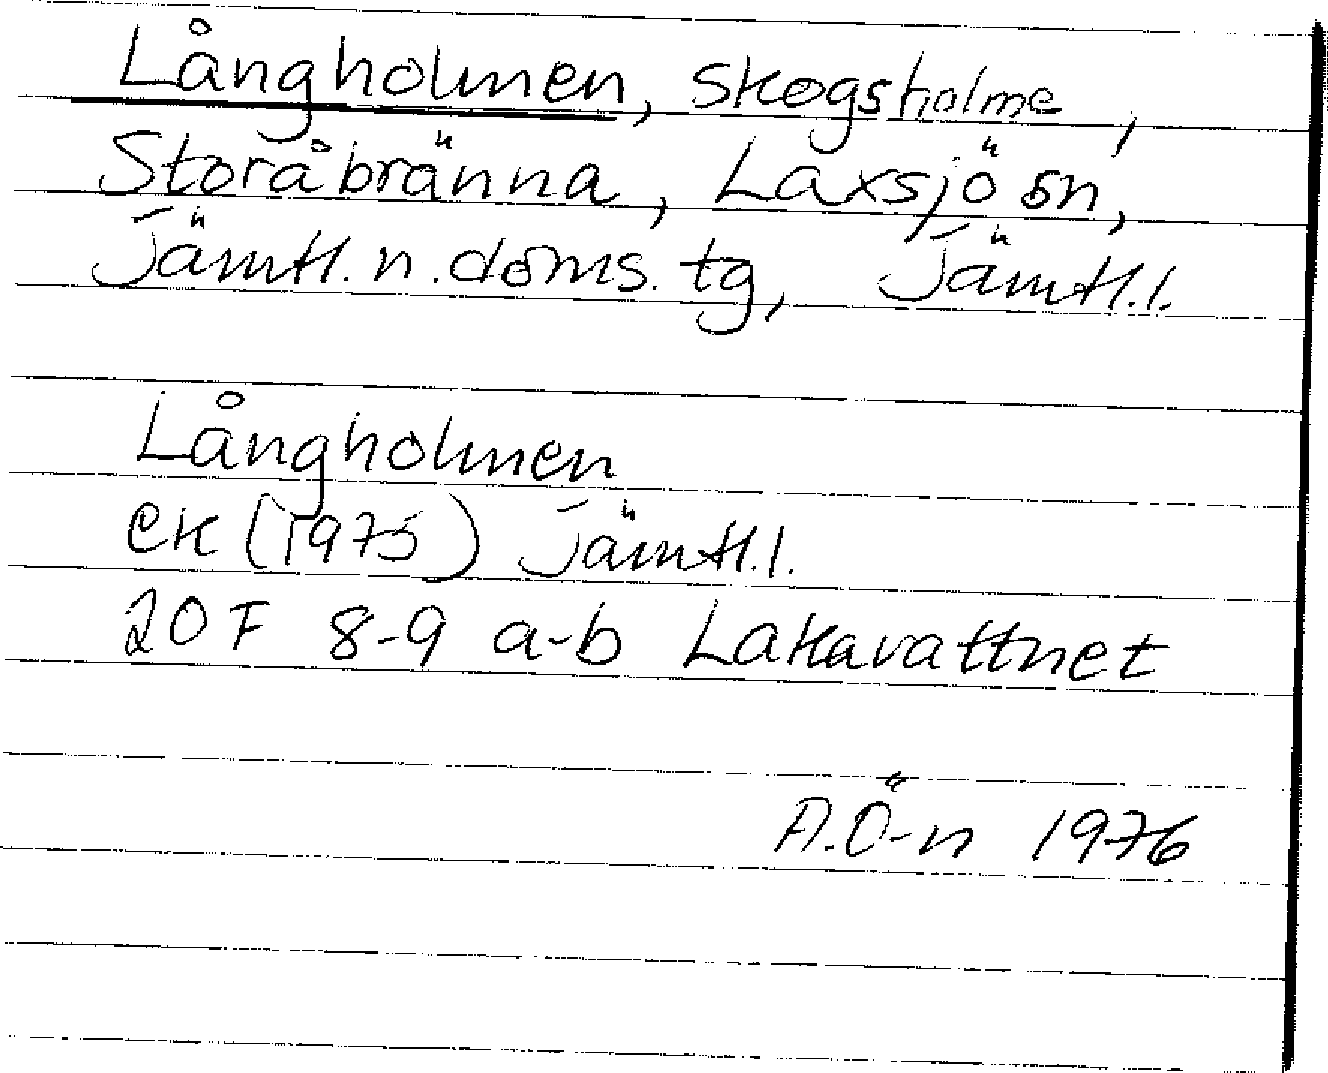 Långholmen, skogsholme,
Storåbränna, Laxsjö sn,
Jämtl. n. doms. tg, Jämtl. l.
Långholmen
ek (1975) Jämtl. l.
20F 8-9 a-b Lakavattnet
A.Ö-n 1976